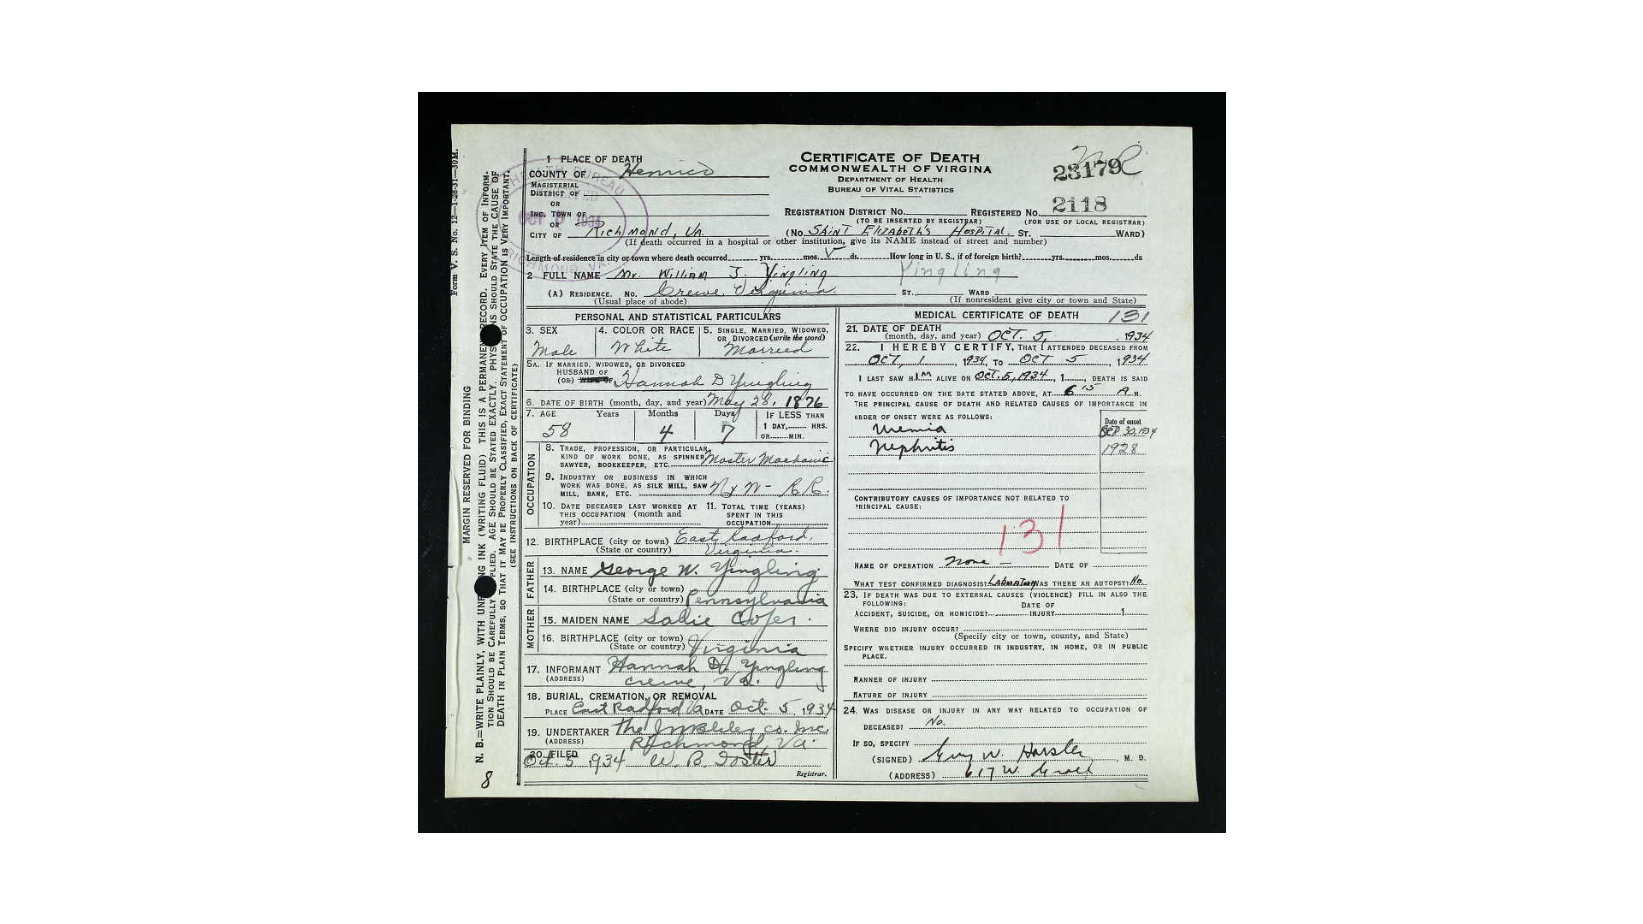 1 PLACE OF DEATH
COUNTY OF Henrico
MAGISTERIAL
DISTRICT OF
OR
INC. TOWN OF
OR
CITY OF Richmond, Va.
CERTIFICATE OF DEATH
COMMONWEALTH OF VIRGINIA
DEPARTMENT OF HEALTH
BUREAU OF VITAL STATISTICS
23179
2118
REGISTRATION DISTRICT No. REGISTERED No.
(TO BE INSERTED BY REGISTRAR) (FOR USE OF LOCAL REGISTRAR)
(No. Saint Elizabeth's Hospital. ST. WARD)
(If death occurred in a hospital or other institution, give its NAME instead of street and number)
Length of residence in city or town where death occurred yrs. mos. ds. How long in U. S., if of foreign birth? yrs. mos. ds
2 FULL NAME Mr. William J. Yingling Yingling
(A) RESIDENCE. No. Crewe, Virginia. ST. WARD
(Usual place of abode) (If nonresident give city or town and State)
PERSONAL AND STATISTICAL PARTICULARS
3. SEX Male
4. COLOR OR RACE White
5. SINGLE, MARRIED, WIDOWED, OR DIVORCED (write the word) Married
5A. IF MARRIED, WIDOWED, OR DIVORCED
HUSBAND OF
(OR) WIFE OF Hannah D Yingling
6. DATE OF BIRTH (month, day, and year) May 28, 1876
7. AGE Years Months Days IF LESS THAN
1 DAY, HRS.
OR MIN.
58 4 7
OCCUPATION
8. TRADE, PROFESSION, OR PARTICULAR
KIND OF WORK DONE, AS SPINNER,
SAWYER, BOOKKEEPER, ETC. Master Machanic
9. INDUSTRY OR BUSINESS IN WHICH
WORK WAS DONE, AS SILK MILL, SAW
MILL, BANK, ETC. N & W - R.R.
10. DATE DECEASED LAST WORKED AT
THIS OCCUPATION (month and
year)
11. TOTAL TIME (YEARS)
SPENT IN THIS
OCCUPATION
12. BIRTHPLACE (city or town) East Radford,
(State or country) Virginia.
FATHER
13. NAME George W. Yingling
14. BIRTHPLACE (city or town)
(State or country) Pennsylvania
MOTHER
15. MAIDEN NAME Sallie
16. BIRTHPLACE (city or town)
(State or country) Virginia
17. INFORMANT Hannah D. Yingling
(ADDRESS) Crewe, Va.
18. BURIAL, CREMATION, OR REMOVAL
PLACE East Radford Va DATE Oct. 5, 1934
19. UNDERTAKER The Co. Inc.
(ADDRESS) Richmond, Va.
20. FILED
Oct. 5 1934 W. B. Foster
Registrar.
MEDICAL CERTIFICATE OF DEATH 131
21. DATE OF DEATH
(month, day, and year) Oct. 5, 1934
22. I HEREBY CERTIFY, THAT I ATTENDED DECEASED FROM
Oct. 1, 1934, TO Oct 5, 1934
I LAST SAW HIM ALIVE ON Oct. 5, 1934, 1 , DEATH IS SAID
TO HAVE OCCURRED ON THE DATE STATED ABOVE, AT 6 15 A M.
THE PRINCIPAL CAUSE OF DEATH AND RELATED CAUSES OF IMPORTANCE IN
ORDER OF ONSET WERE AS FOLLOWS:
Date of onset
Uremia Sep. 30, 1934
Nephritis 1928
CONTRIBUTORY CAUSES OF IMPORTANCE NOT RELATED TO
PRINCIPAL CAUSE:
131
NAME OF OPERATION None DATE OF
WHAT TEST CONFIRMED DIAGNOSIS? Laboratory WAS THERE AN AUTOPSY? No.
23. IF DEATH WAS DUE TO EXTERNAL CAUSES (VIOLENCE) FILL IN ALSO THE
FOLLOWING:
ACCIDENT, SUICIDE, OR HOMICIDE? DATE OF INJURY 1
WHERE DID INJURY OCCUR?
(Specify city or town, county, and State)
SPECIFY WHETHER INJURY OCCURRED IN INDUSTRY, IN HOME, OR IN PUBLIC
PLACE.
MANNER OF INJURY
NATURE OF INJURY
24. WAS DISEASE OR INJURY IN ANY WAY RELATED TO OCCUPATION OF
DECEASED? No.
IF SO, SPECIFY
(SIGNED) Guy W. Horsley M. D.
(ADDRESS) 617 W. Grace
Form V. S. No. 12—1-28-31—30M.
MARGIN RESERVED FOR BINDING
N. B.—WRITE PLAINLY, WITH INK (WRITING FLUID) THIS IS A PERMANENT RECORD. EVERY ITEM OF INFORM-
TION SHOULD BE CAREFULLY SUPPLIED. AGE SHOULD BE STATED EXACTLY. SHOULD STATE THE CAUSE OF
DEATH IN PLAIN TERMS, SO THAT IT MAY BE PROPERLY CLASSIFIED. EXACT STATEMENT OF OCCUPATION IS VERY IMPORTANT.
(SEE INSTRUCTIONS ON BACK OF CERTIFICATE)
8